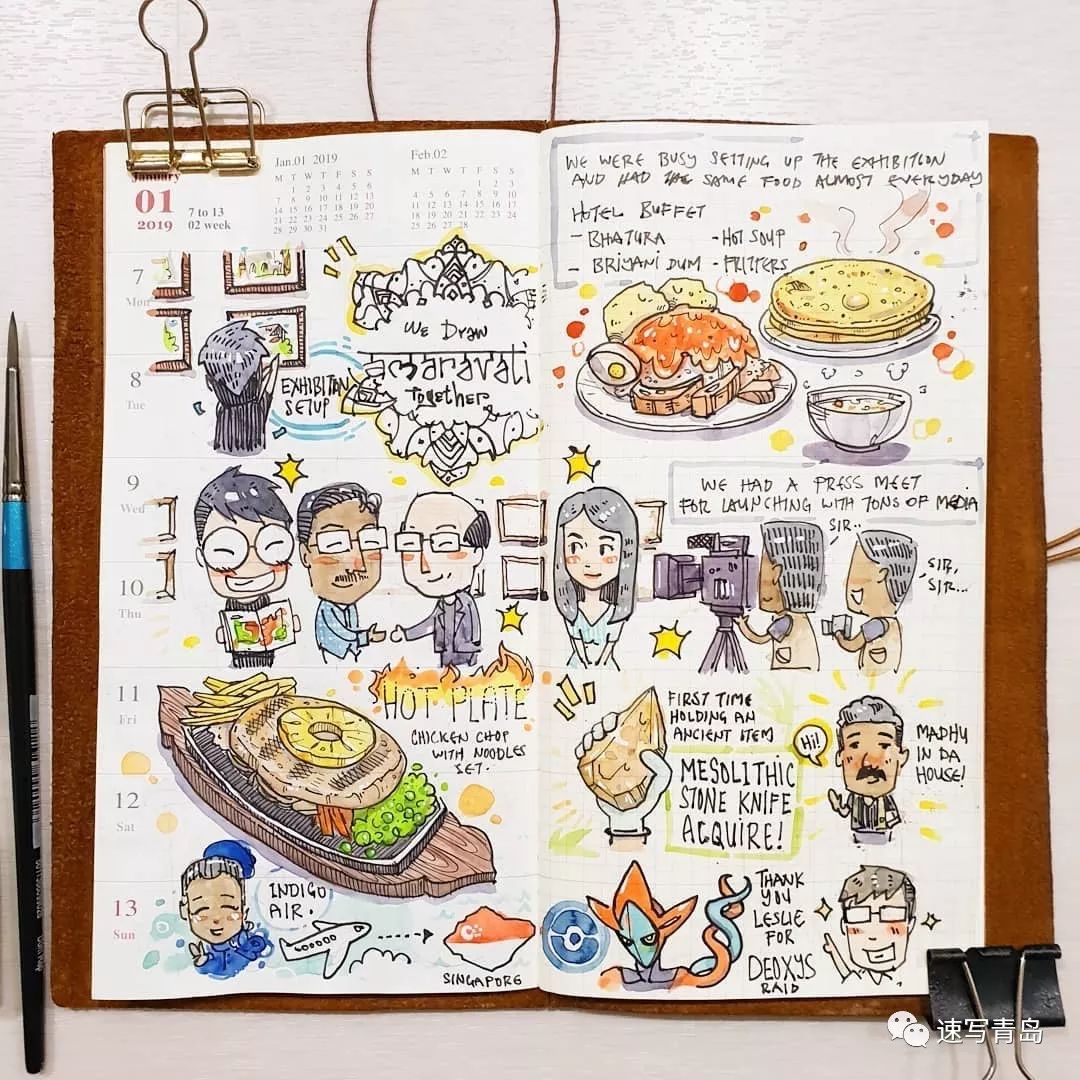 January
01
2019
7 to 13
02 week
Jan.01 2019
M T W T F S S
1 2 3 4 5 6
7 8 9 10 11 12 13
14 15 16 17 18 19 20
21 22 23 24 25 26 27
28 29 30 31
Feb.02
M T W T F S S
1 2 3
4 5 6 7 8 9 10
11 12 13 14 15 16 17
18 19 20 21 22 23 24
25 26 27 28
7
Mon
8
Tue
9
Wed
10
Thu
11
Fri
12
Sat
13
Sun
EXHIBITION
SETUP
WE DRAW
amaravati
together
HOT PLATE
CHICKEN CHOP
WITH NOODLES
SET.
INDIGO
AIR.
SINGAPORE
WE WERE BUSY SETTING UP THE EXHIBITION
AND HAD THE SAME FOOD ALMOST EVERYDAY
HOTEL BUFFET
- BHATURA - HOT SOUP
- BRIYANI DUM - FRITTERS
WE HAD A PRESS MEET
FOR LAUNCHING WITH TONS OF MEDIA
SIR..
SIR,
SIR...
FIRST TIME
HOLDING AN
ANCIENT ITEM
MESOLITHIC
STONE KNIFE
ACQUIRE!
Hi!
MADHU
IN DA
HOUSE!
THANK
YOU
LESLIE
FOR
DEOXYS
RAID
速写青岛